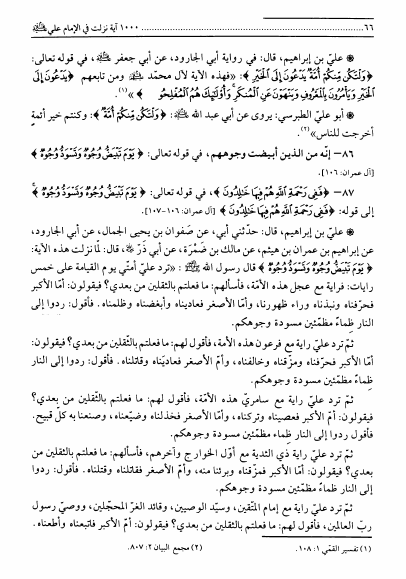 ٦٦ ............ ١٠٠٠ آية نزلت في الإمام علي ﷺ
* عليّ بن إبراهيم، قال: في رواية أبي الجارود، عن أبي جعفر ﷺ، في قوله تعالى:
﴿وَلْتَكُن مِّنكُمْ أُمَّةٌ يَدْعُونَ إِلَى الْخَيْرِ﴾: «فهذه الآية لآل محمّد ﷺ ومن تابعهم ﴿يَدْعُونَ إِلَى
الْخَيْرِ وَيَأْمُرُونَ بِالْمَعْرُوفِ وَيَنْهَوْنَ عَنِ الْمُنكَرِ وَأُوْلَئِكَ هُمُ الْمُفْلِحُونَ﴾»(١).
* أبو علي الطبرسي: يروى عن أبي عبد الله ﷺ: ﴿وَلْتَكُن مِّنكُمْ أُمَّةٌ﴾: وكنتم خير أئمة
أخرجت للناس»(٢).
٨٦ – إنّه من الذين أبيضت وجوههم، في قوله تعالى: ﴿يَوْمَ تَبْيَضُّ وُجُوهٌ وَتَسْوَدُّ وُجُوهٌ﴾
[آل عمران: ١٠٦].
٨٧ – ﴿فَفِي رَحْمَةِ اللَّهِ هُمْ فِيهَا خَالِدُونَ﴾، في قوله تعالى: ﴿يَوْمَ تَبْيَضُّ وُجُوهٌ وَتَسْوَدُّ وُجُوهٌ﴾
إلى قوله: ﴿فَفِي رَحْمَةِ اللَّهِ هُمْ فِيهَا خَالِدُونَ﴾ [آل عمران: ١٠٦-١٠٧].
* عليّ بن إبراهيم، قال: حدّثني أبي، عن صَفوان بن يحيى الجمال، عن أبي الجارود،
عن إبراهيم بن عمران بن هيثم، عن مالك بن ضَمْرة، عن أبي ذَرّ ﷺ، قال: لمّا نزلت هذه الآية:
﴿يَوْمَ تَبْيَضُّ وُجُوهٌ وَتَسْوَدُّ وُجُوهٌ﴾ قال رسول الله ﷺ: «ترد عليّ أمتّي يوم القيامة على خمس
رايات: فراية مع عجل هذه الأمّة، فأسألهم: ما فعلتم بالثّقلين من بعدي؟ فيقولون: أمّا الأكبر
فحرّفناه ونبذناه وراء ظهورنا، وأمّا الأصغر فعاديناه وأبغضناه وظلمناه. فأقول: ردوا إلى
النار ظِماءً مظمّئين مسودة وجوهكم.
ثمّ ترد عليّ راية مع فرعون هذه الأمة، فأقول لهم: ما فعلتم بالثّقلين من بعدي؟ فيقولون:
أمّا الأكبر فحرّفناه ومزّقناه وخالفناه، وأمّ الأصغر فعاديناه وقاتلناه. فأقول: ردوا إلى النار
ظِماءً مظمّئين مسودة وجوهكم.
ثمّ ترد عليّ راية مع سامريّ هذه الأمّة، فأقول لهم: ما فعلتم بالثّقلين من بعدي؟
فيقولون: أمّ الأكبر فعصيناه وتركناه، وأمّا الأصغر فخذلناه وضيّعناه، وصنعنا به كلّ قبيح.
فأقول ردوا إلى النار ظماء مظمئين مسودة وجوهكم.
ثمّ ترد عليّ راية ذي الثدية مع أوّل الخوارج وآخرهم، فأسألهم: ما فعلتم بالثقلين من
بعدي؟ فيقولون: أمّا الأكبر فمزّقناه وبرئنا منه، وأمّ الأصغر فقاتلناه وقتلناه. فأقول: ردوا
إلى النار ظِماءً مظمّئين مسودة وجوهكم.
ثمّ ترد عليّ راية مع إمام المتّقين، وسيّد الوصيين، وقائد الغرّ المحجّلين، ووصيّ رسول
ربّ العالمين، فأقول لهم: ما فعلتم بالثقلين من بعدي؟ فيقولون: أمّ الأكبر فاتبعناه وأطعناه.
(١) تفسير القمّي ١: ١٠٨. (٢) مجمع البيان ٢: ٨٠٧.